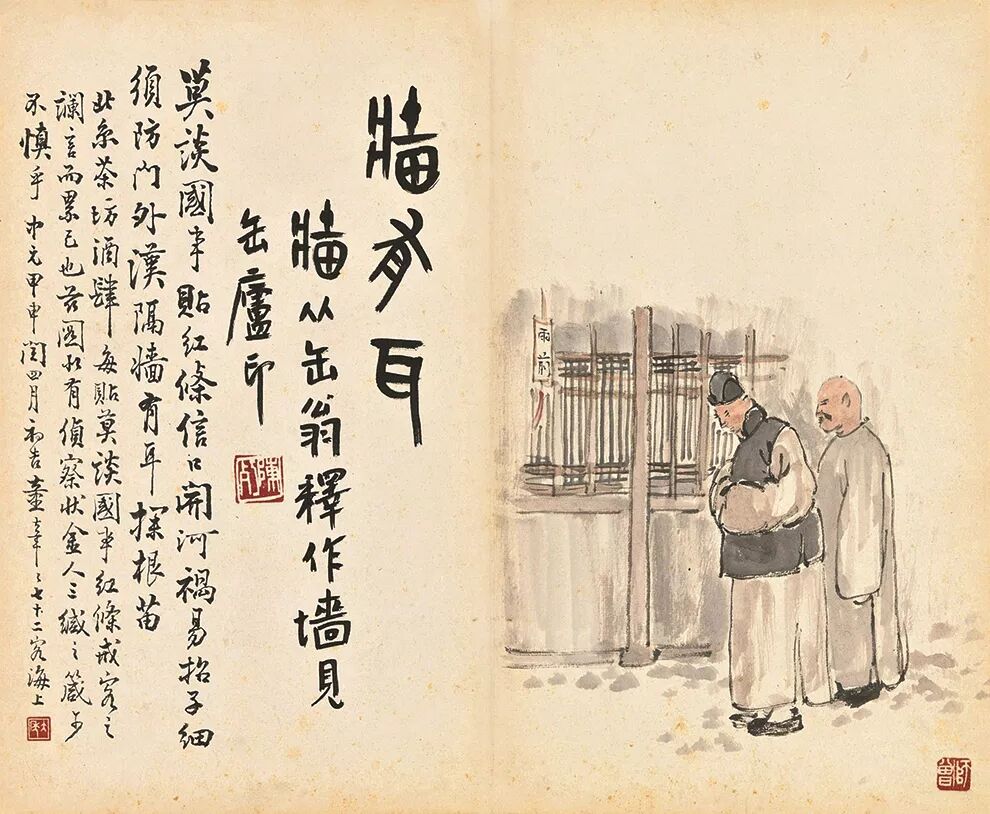 雨前
師曾
牆有耳
牆从缶翁釋作墙見
缶廬印
莫談國事貼紅條信口開河禍易招子細
須防門外漢隔牆有耳探根苗
北京茶坊酒肆每貼莫談國事紅條戒客之
讕言而累己也茲圖似有偵察狀金人三緘之箴可
不慎乎中元甲申閏四月初吉童大年々七十二客海上